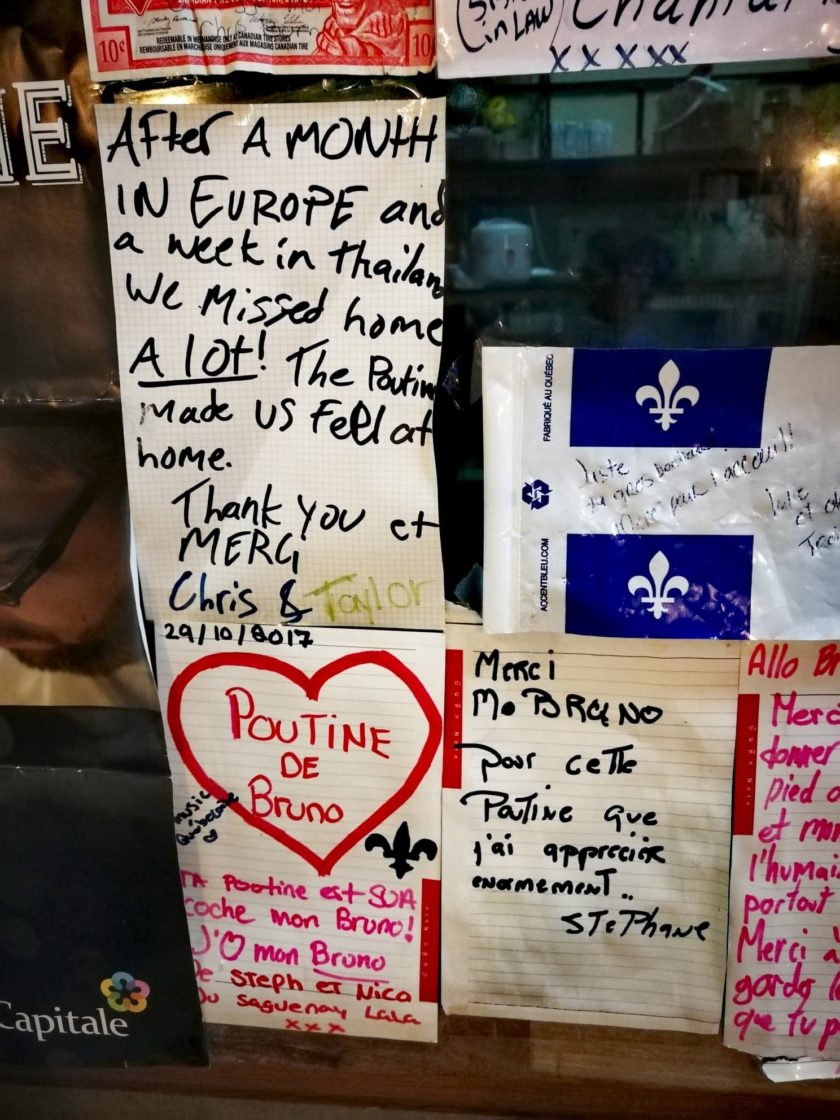 10¢
REDEEMABLE IN MERCHANDISE ONLY AT CANADIAN TIRE STORES
REMBOURSABLE EN MARCHANDISE UNIQUEMENT AUX MAGASINS CANADIAN TIRE
10
in LAW)
Chantal
x x x x x
After A MONTH
IN EUROPE and
a week in thailand
We Missed home
A lot! The Poutine
made us Fell at
home.
Thank you et
MERCi
Chris & Taylor
FABRIQUÉ AU QUÉBEC
ACCENTBLEU.COM
Juste
du gros bonheur
Merci pour l'accueil!!
Julie
et
29/10/2017
POUTINE
DE
Bruno
music
Québecoise
TA Poutine est SUA
coche mon Bruno!
J'O mon Bruno
De STEPH et Nico
DU Saguenay LaLa
x x x
Merci
Mo BRUNO
pour cette
Poutine que
j'ai appreciér
enormement..
STéPhane
Allo Br
Merci
donner
pied
et
l'humai
partout
Merci à
gardes
que tu p
Capitale